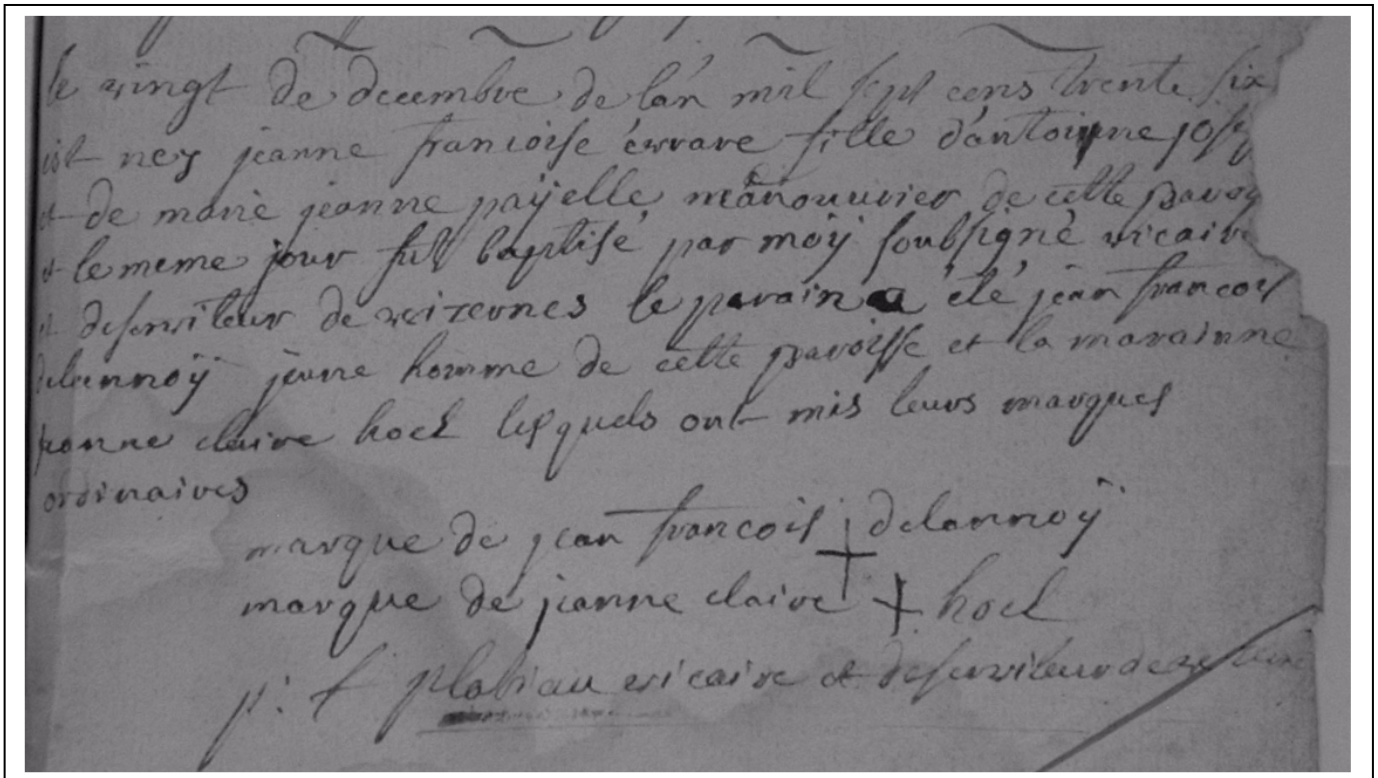 le vingt de decembre de lán mil sept cens trente six
est ney jeanne francoise evrare fille d'antoinne josep
et de marie jeanne payelle manouuvier de cette paroy
et le meme jour fut baptisé par moÿ soubsigné vicaire
et deserviteur de wizernes le parain a été jean francois
delannoÿ jeune homme de cette paroisse et la marainne
jeanne claire hoel lesquels ont mis leurs marques
ordinaires
marque de jean francois + delannoÿ
marque de jeanne claire + hoel
p: f plabiau vicaire et deserviteur de